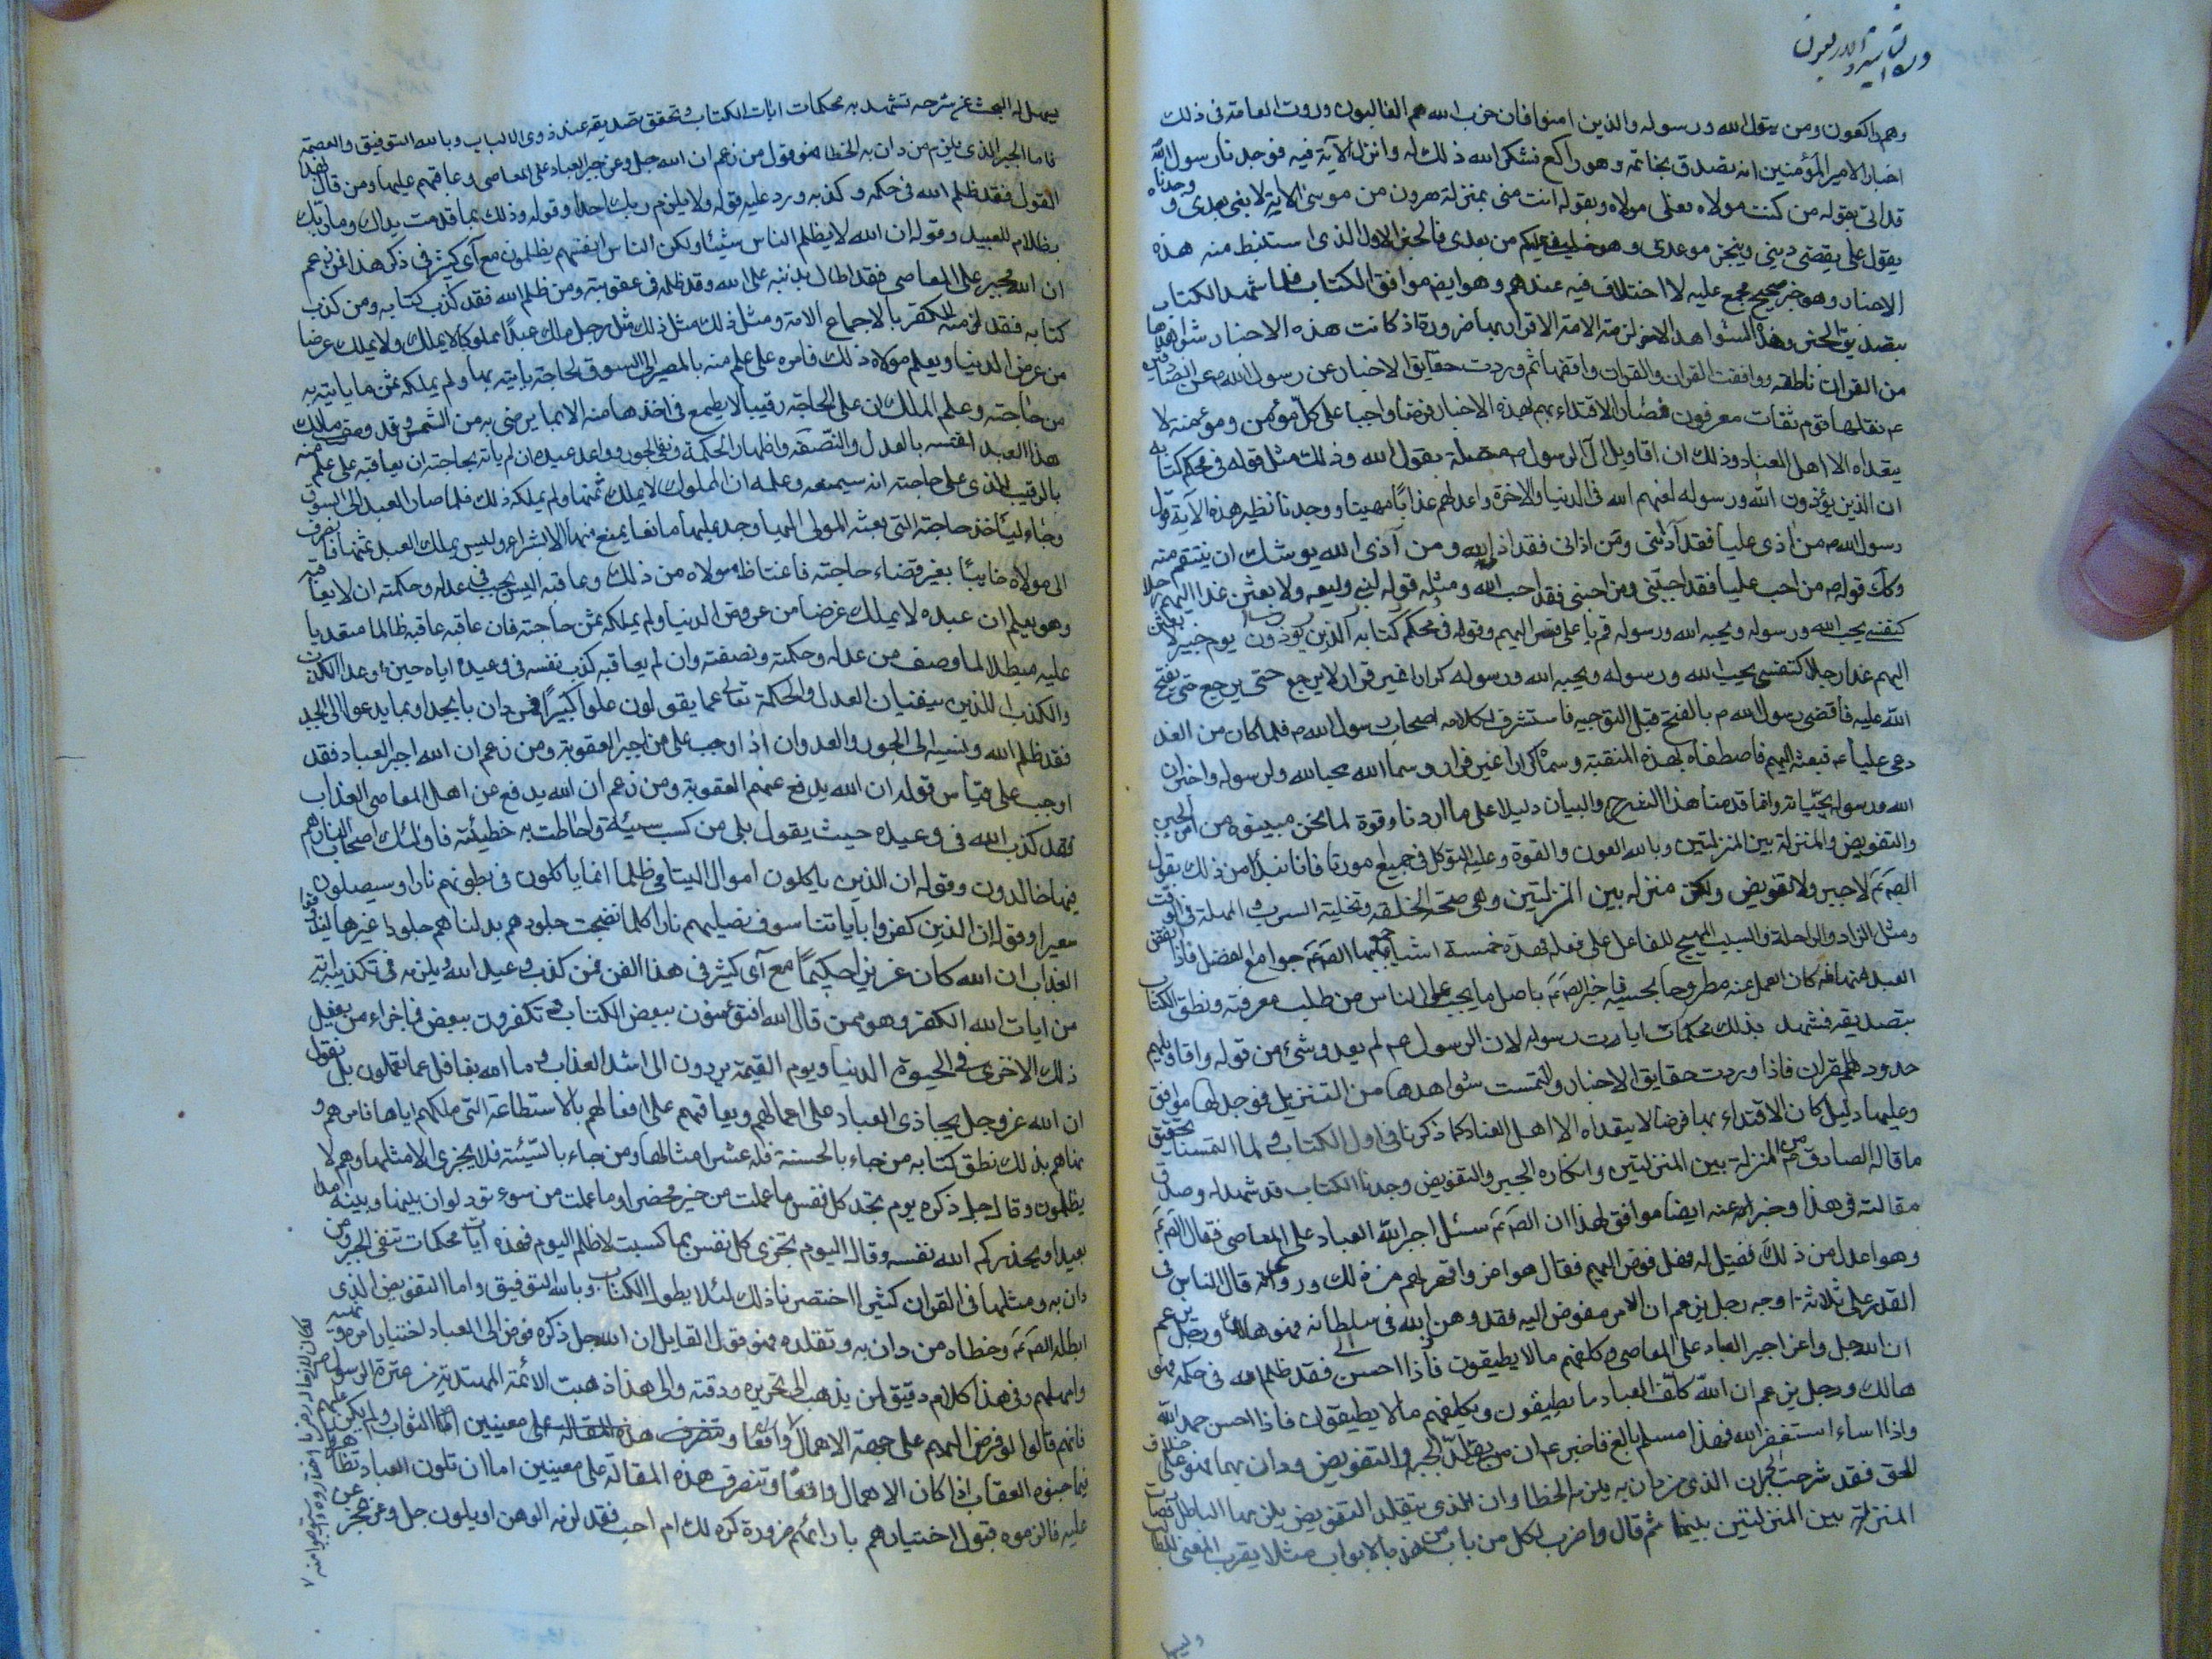 وهم راكعون ومن يتول الله ورسوله والذين امنوا فان حزب الله هم الغالبون وروت العامة في ذلك
اخبارا لامير المؤمنين انه تصدق بخاتمه وهو راكع فشكر الله ذلك له وانزل الآية فيه فوجدنا رسول الله
قد اتى بقوله من كنت مولاه فعلي مولاه وبقوله انت مني بمنزلة هرون من موسى الا انه لا نبي بعدي ووجدناه
يقول علي يقضي ديني وينجز موعدي وهو خليفتي عليكم من بعدي فالخبر الاول الذي استنبط منه هذه
الاخبار وهو خبر صحيح مجمع عليه لا اختلاف فيه عندهم وهو ايضا موافق الكتاب فلما شهد الكتاب
بتصديق الخبر وهذه الشواهد الاخر لزمت الامة الاقرار بها ضرورة اذ كانت هذه الاخبار شواهدها
من القران ناطقه ووافقت القران والقران وافقها ثم وردت حقايق الاخبار عن رسول الله ص عن الصادقين
ع نقلها قوم ثقات معروفون فصار الاقتداء بهم بهذه الاخبار فرضا واجبا على كل مؤمن ومؤمنة لا
يتعداه الا اهل العناد وذلك ان اقاويل ال الرسول ص متصلة بقول الله وذلك مثل قوله في محكم كتابه
ان الذين يؤذون الله ورسوله لعنهم الله في الدنيا والاخرة واعد لهم عذابا مهينا ووجدنا نظير هذه الآية قول
رسول الله ص من اذى عليا فقد آذاني ومن اذاني فقد اذى الله ومن آذى الله يوشك ان ينتقم منه
وكك قوله ص من احب عليا فقد احبني ومن احبني فقد احب الله ومثله قوله لبني وليعه ولابعثن غدا اليهم رجلا
كنفسي يحب الله ورسوله ويحبه الله ورسوله قم يا علي فسر اليهم وقوله يوم خيبر لابعثن
اليهم غدا رجلا كنفسي يحب الله ورسوله ويحبه الله ورسوله كرارا غير فرار لا يرجع حتى يفتح
الله عليه فاقضى رسول الله ص بالفتح قبل التوجيه فاستشرف لكلامه اصحاب رسول الله ص فلما كان من الغد
دعى عليا ع فبعثه اليهم فاصطفاه بهذه المنقبة وسماه كرارا غير فرار وسماه الله محبا لله ولرسوله واخبر ان
الله ورسوله يحبانه وانما قدمنا هذا الشرح والبيان دليلا على ما اردنا وقوة لما نحن مبينوه من امر الجبر
والتفويض والمنزلة بين المنزلتين وبالله العون والقوة وعليه التوكل في جميع امورنا فانا نبدأ من ذلك بقول
الصم لا جبر ولا تفويض ولكن منزله بين المنزلتين وهي صحة الخلقه وتخلية السرب والمهلة في الوقت
ومثل الزاد والراحلة والسبب المهيج للفاعل على فعله فهذه خمسة اشياء جمع بها الصم جوامع الفضل فاذا نقص
العبد منها خلة كان العمل عنه مطروحا بحسبه فاخبر الصم باصل ما يجب على الناس من طلب معرفته ونطق الكتاب
بتصديقه فشهد بذلك محكمات ايات رسوله لان الرسول ص لم يعدو شئ من قوله واقاويلهم
حدود القران فاذا وردت حقايق الاخبار والتمست شواهدها من التنزيل فوجد لها موافق
وعليها دليلا كان الاقتداء بها فرضا لا يتعداه الا اهل العناد كما ذكرنا في اول الكتاب ولما التمسنا تحقيق
ما قاله الصادق ص من المنزلة بين المنزلتين وانكاره الجبر والتفويض وجدنا الكتاب قد شهد له وصدق
مقالته في هذا وخبر عنه ايضا موافق لهذا ان الصم سئل اجبر الله العباد على المعاصي فقال الصم
وهو اعدل من ذلك فقيل له فهل فوض اليهم فقال هو اعز واقهر لهم من ذلك وروي عنه انه قال الناس في
القدر على ثلاثة اوجه رجل يزعم ان الامر مفوض اليه فقد وهن الله في سلطانه فهو هالك ورجل يزعم
ان الله جل واعز اجبر العباد على المعاصي وكلفهم ما لا يطيقون فقد ظلم الله في حكمه فهو
هالك ورجل يزعم ان الله كلف العباد ما يطيقون ولم يكلفهم ما لا يطيقون فاذا احسن حمد الله
واذا اساء استغفر الله فهذا مسلم بالغ فاخبر ع ان من تقلد الجبر والتفويض ودان بهما فهو على خلاف
الحق فقد شرحت الجبر الذي من دان به يلزمه الخطا وان الذي يتقلد التفويض يلزمه الباطل فصارت
المنزلة بين المنزلتين بينهما ثم قال واضرب لكل من باب من هذه الابواب مثلا يقرب المعنى للطالب
وليسهل
يسهل له البحث عن شرحه تشهد به محكمات ايات الكتاب وتحقق تصديقه عند ذوي الالباب وبالله التوفيق والعصمة
فاما الجبر الذي يلزم من دان به الخطا فهو قول من زعم ان الله جل وعز جبر العباد على المعاصي وعاقبهم عليها ومن قال بهذا
القول فقد ظلم الله في حكمه وكذبه ورد عليه قوله ولا يظلم ربك احدا وقوله وذلك بما قدمت يداك وما ربك
بظلام للعبيد وقوله ان الله لا يظلم الناس شيئا ولكن الناس انفسهم يظلمون مع آي كثير في ذكر هذا فمن زعم
ان الله مجبر على المعاصي فقد احال بذنبه على الله وقد ظلمه في عقوبته ومن ظلم الله فقد كذب كتابه ومن كذب
كتابه فقد لزمه الكفر بالاجماع الامة ومثل ذلك مثل رجل ملك عبدا مملوكا لا يملك ولا يملك عرضا
من عرض الدنيا ويعلم مولاه ذلك فامره على علم منه بالمصير الى السوق لحاجة ياتيه بها ولم يملكه ثمن ما ياتيه به
من حاجته وعلم الملك ان على الحاجة رقيبا لا يطمع في اخذها منه الا بما يرضى به من الثمن وقد وصف مالك
هذا العبد نفسه بالعدل والنصفه واظهار الحكمة ونفي الجور وواعد عبده ان لم ياته بحاجته ان يعاقبه على علم منه
بالرقيب الذي على حاجته انه سيمنعه وعلمه ان المملوك لا يملك ثمنها ولم يملكه ذلك فلما صار العبد الى السوق
وجاء ليأخذ حاجته التي بعثه المولى اليها وجد عليها مانعا يمنع منها الا بشراء وليس يملك العبد ثمنها فانصرف
الى مولاه خايبا بغير قضاء حاجته فاغتاظ مولاه من ذلك وعاقبه اليس يجب في عدله وحكمته ان لا يعاقبه
وهو يعلم ان عبده لا يملك عرضا من عروض الدنيا ولم يملكه ثمن حاجته فان عاقبه عاقبه ظالما متعديا
عليه مبطلا لما وصف من عدله وحكمته ونصفته وان لم يعاقبه كذب نفسه في وعيده اياه حين اوعده الكذب
والكذب اللذين ينفيان العدل والحكمة تعالى عما يقولون علوا كبيرا فمن دان بالجبر او بما يدعوا الى الجبر
فقد ظلم الله ونسبه الى الجور والعدوان اذ اوجب على من اجبر العقوبة ومن زعم ان الله اجبر العباد فقد
اوجب على قياس قوله ان الله يدفع عنهم العقوبة ومن زعم ان الله يدفع عن اهل المعاصي العذاب
فقد كذب الله في وعيده حيث يقول بلى من كسب سيئة واحاطت به خطيئته فاولئك اصحاب النار هم
فيها خالدون وقوله ان الذين ياكلون اموال اليتامى ظلما انما ياكلون في بطونهم نارا وسيصلون
سعيرا وقوله ان الذين كفروا باياتنا سوف نصليهم نارا كلما نضجت جلودهم بدلناهم جلودا غيرها ليذوقوا
العذاب ان الله كان عزيزا حكيما مع آي كثير في هذا الفن فمن كذب وعيد الله ويلزمه في تكذيبه اية
من ايات الله الكفر وهو ممن قال الله افتؤمنون ببعض الكتاب وتكفرون ببعض فما جزاء من يفعل
ذلك الا خزي في الحيوة الدنيا ويوم القيمة يردون الى اشد العذاب وما الله بغافل عما تعملون بل نقول
ان الله عز وجل يجاذى العباد على اعمالهم ويعاقبهم على افعالهم بالاستطاعة التي ملكهم اياها فامرهم و
نهاهم بذلك نطق كتابه من جاء بالحسنة فله عشر امثالها ومن جاء بالسيئة فلا يجزى الا مثلها وهم لا
يظلمون وقال جل ذكره يوم تجد كل نفس ما عملت من خير محضرا وما عملت من سوء تود لو ان بينها وبينه امدا
بعيدا ويحذركم الله نفسه وقال اليوم تجزى كل نفس بما كسبت لا ظلم اليوم فهذه ايات محكمات تنفي الجبر ومن
دان به ومثلها في القران كثير اختصرنا ذلك لئلا يطول الكتاب وبالله التوفيق واما التفويض الذي
ابطله الصم وخطاه من دان به وتقلده فهو قول القايل ان الله جل ذكره فوض الى العباد اختيار امره ونهيه
واهملهم وفي هذا كلام دقيق لمن يذهب الى تحريره ودقته والى هذا ذهبت الائمة المهتدية من عترة الرسول ص
فانهم قالوا لو فوض اليهم على جهة الاهمال
فيما جنوه العقاب اذا كان الاهمال واقعا وتنصرف هذه المقالة على معنيين اما ان تكون العباد تظاهروا
عليه فالزموه قبول اختيارهم باراءهم ضرورة كره ذلك ام احب فقد لزمه الوهن او يكون جل وعز عجز عن